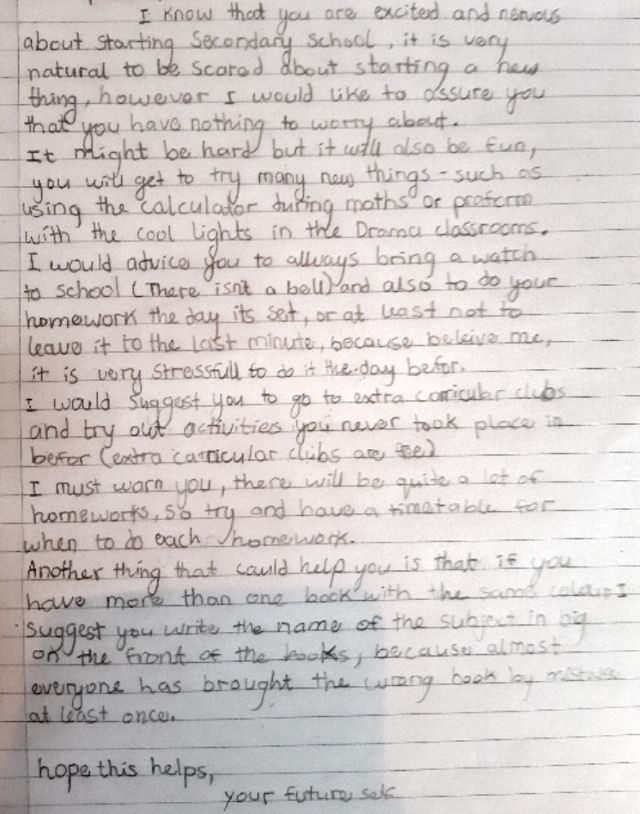 I know that you are excited and nervous
about starting Secondary School, it is very
natural to be scared about starting a new
thing, however I would like to assure you
that you have nothing to worry about.
It might be hard but it will also be fun,
you will get to try many new things - such as
using the calculator during maths or preform
with the cool lights in the Drama classrooms.
I would advice you to allways bring a watch
to school (There isnt a bell) and also to do your
homework the day its set, or at least not to
leave it to the last minute, because beleive me,
it is very stressfull to do it the day befor.
I would suggest you to go to extra corricular clubs
and try out activities you never took place in
befor (extra carricular clubs are fee)
I must warn you, there will be quite a lot of
homeworks, so try and have a timetable for
when to do each homework.
Another thing that could help you is that if you
have more than one book with the same colour I
suggest you write the name of the subject in big
on the front of the books, because almost
everyone has brought the wrong book by mistake
at least once.
hope this helps,
your future self